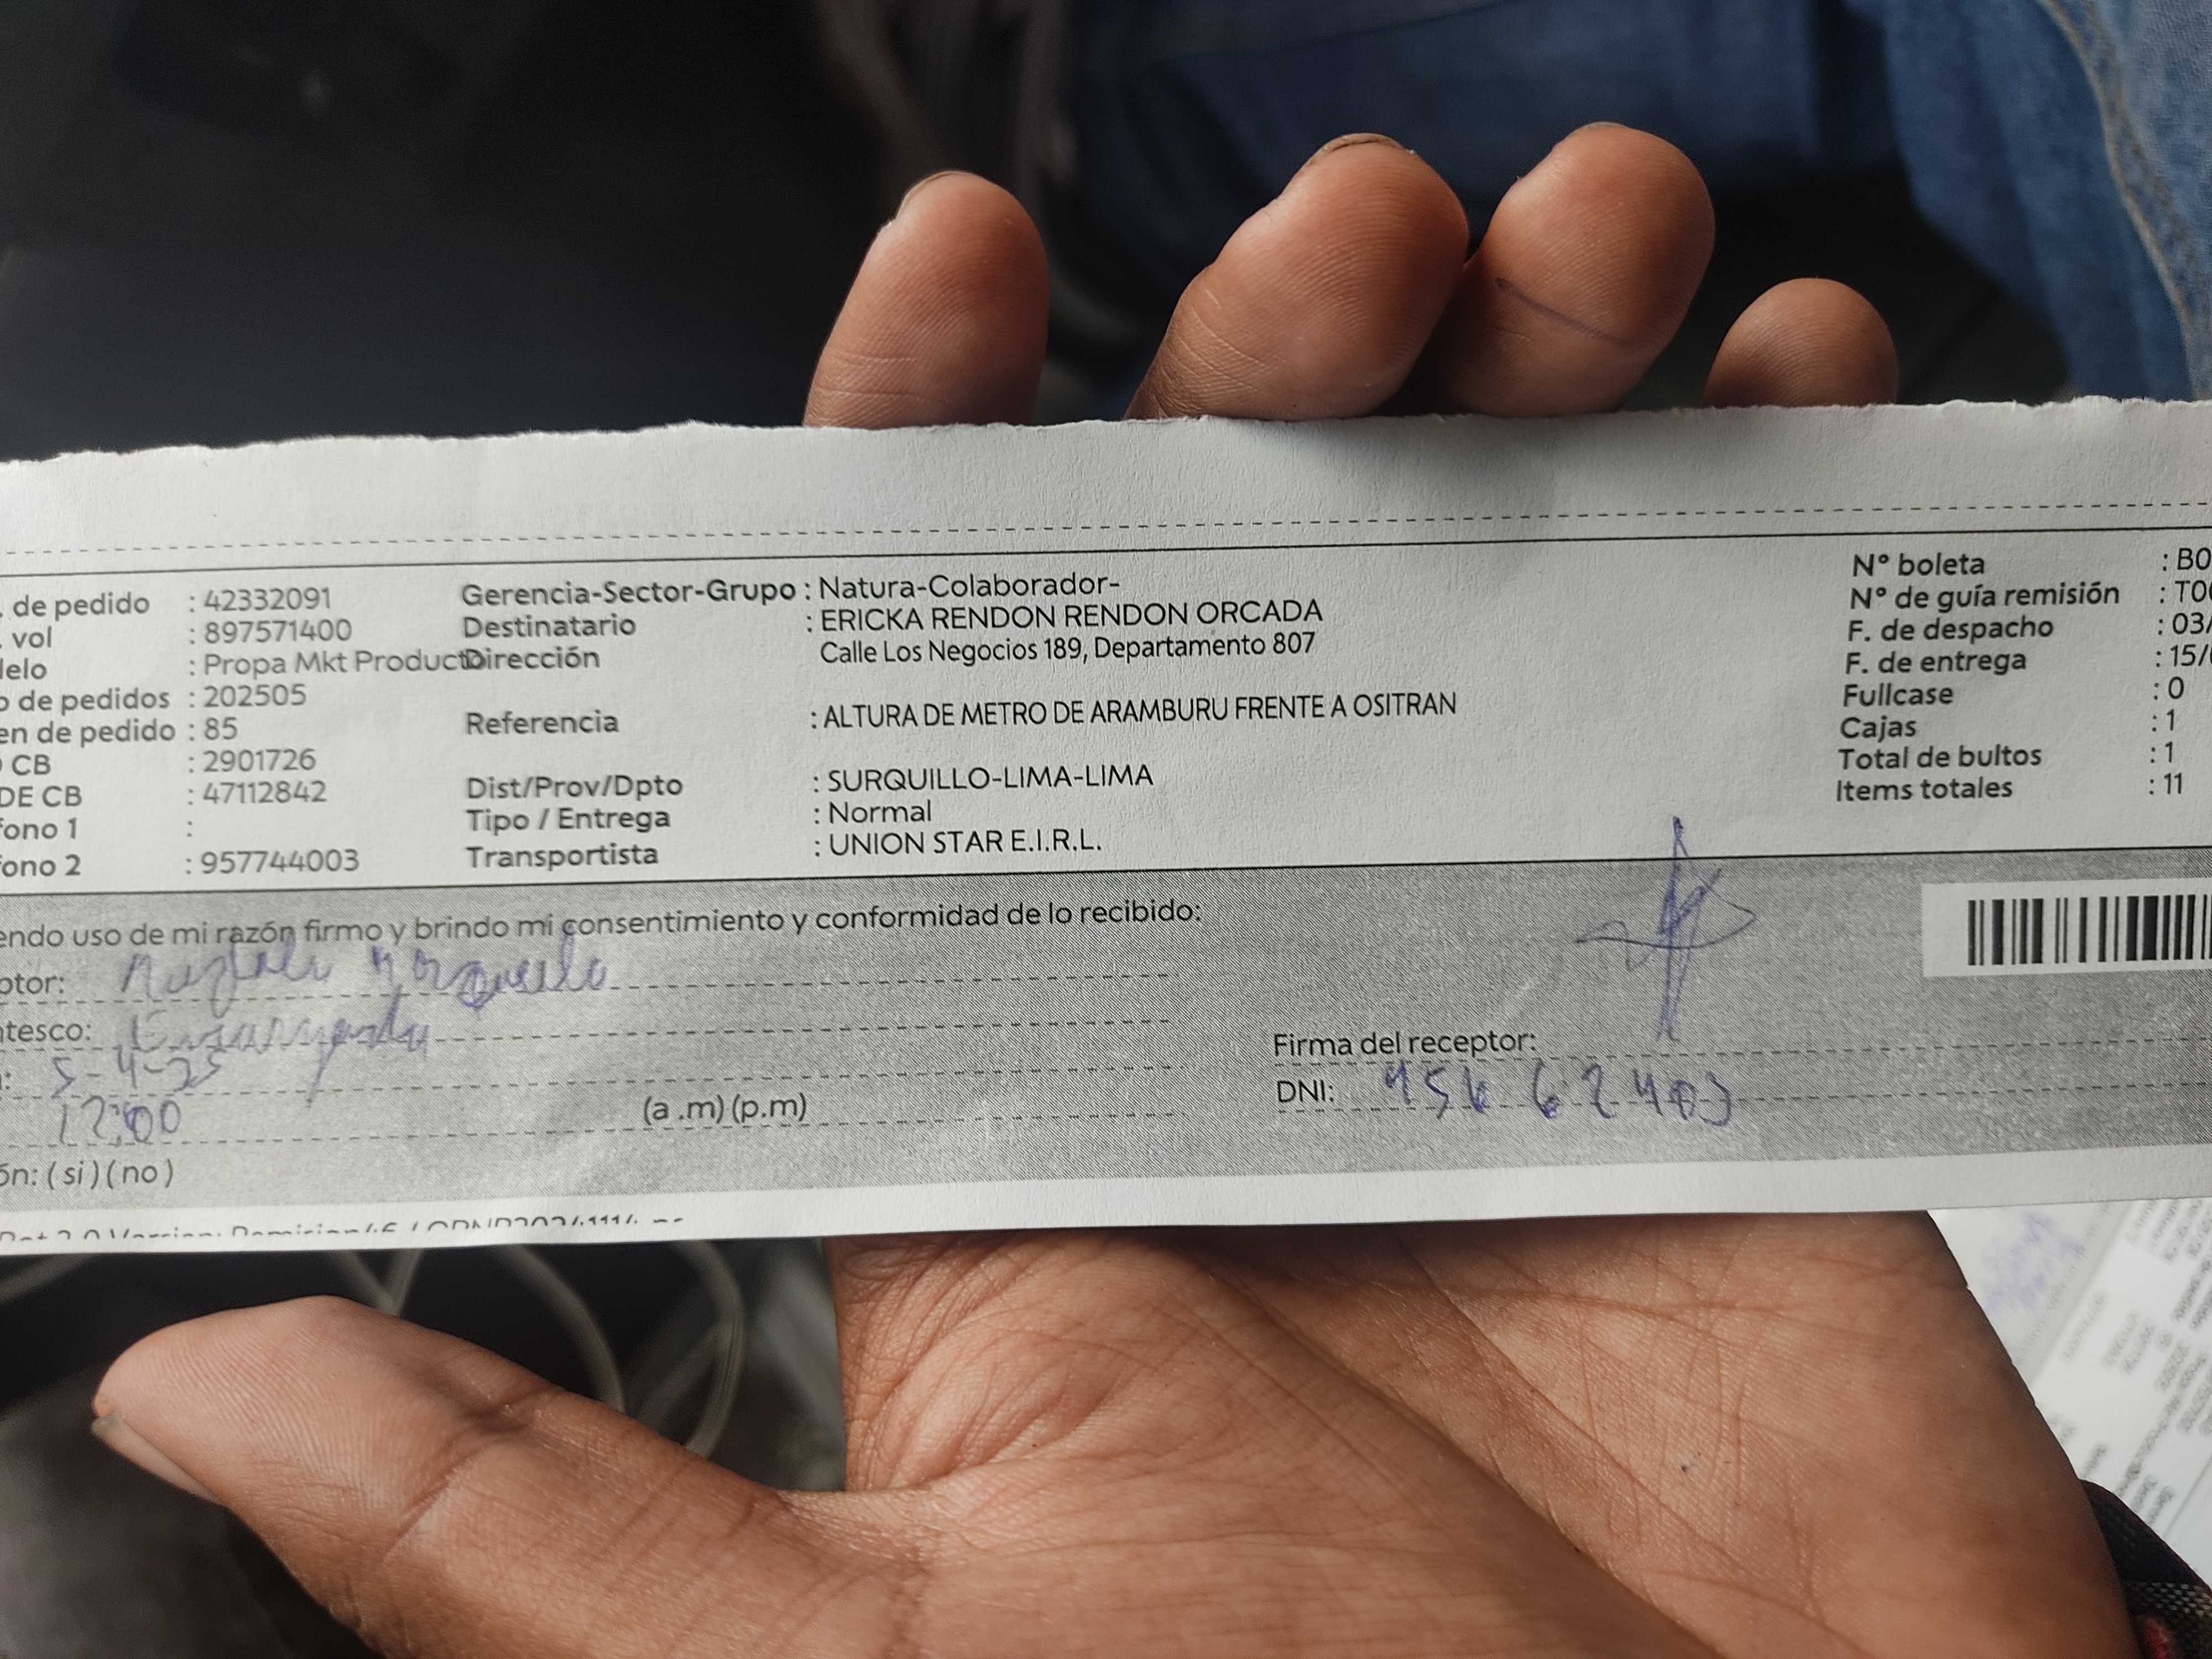 . de pedido : 42332091
. vol : 897571400
delo : Propa Mkt Producto
o de pedidos : 202505
en de pedido : 85
CB : 2901726
DE CB : 47112842
fono 1 :
fono 2 : 957744003
Gerencia-Sector-Grupo : Natura-Colaborador-
Destinatario : ERICKA RENDON RENDON ORCADA
Dirección Calle Los Negocios 189, Departamento 807
Referencia : ALTURA DE METRO DE ARAMBURU FRENTE A OSITRAN
Dist/Prov/Dpto : SURQUILLO-LIMA-LIMA
Tipo / Entrega : Normal
Transportista : UNION STAR E.I.R.L.
N° boleta : B0
N° de guía remisión : T00
F. de despacho : 03/
F. de entrega : 15/
Fullcase : 0
Cajas : 1
Total de bultos : 1
Items totales : 11
endo uso de mi razón firmo y brindo mi consentimiento y conformidad de lo recibido:
ptor:
ntesco:
: 5-4-25
12:00 (a .m) (p.m)
ón: ( si ) ( no )
Firma del receptor:
DNI: